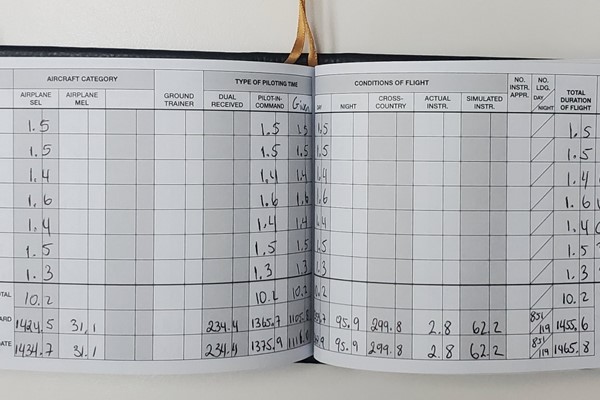 AIRCRAFT CATEGORY TYPE OF PILOTING TIME CONDITIONS OF FLIGHT
AIRPLANE SEL AIRPLANE MEL GROUND TRAINER DUAL RECEIVED PILOT-IN-COMMAND Given DAY NIGHT CROSS-COUNTRY ACTUAL INSTR. SIMULATED INSTR. NO. INSTR. APPR. NO. LDG. DAY NIGHT TOTAL DURATION OF FLIGHT
1.5 1.5 1.5 1.5 1.5
1.5 1.5 1.5 1.5 1.5
1.4 1.4 1.4 1.4 1.4
1.6 1.6 1.6 1.6 1.6
1.4 1.4 1.4 1.4 1.4
1.5 1.5 1.5 1.5 1.5
1.3 1.3 1.3 1.3 1.3
10.2 10.2 10.2 10.2
1424.5 31.1 234.4 1365.7 95.9 299.8 2.8 62.2 831 119 1455.6
1434.7 31.1 234.4 1375.9 95.9 299.8 2.8 62.2 831 119 1465.8